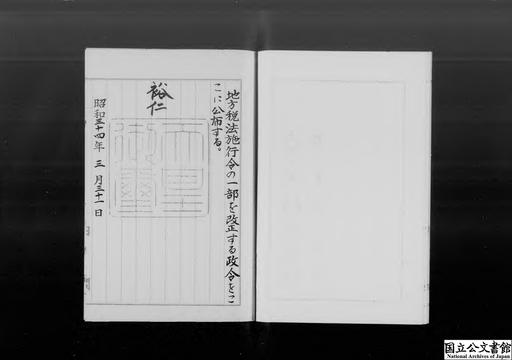 地方税法施行令の一部を改正する政令をこ
こに公布する。
裕仁
天皇御璽
昭和三十四年三月三十一日
国立公文書館
National Archives of Japan